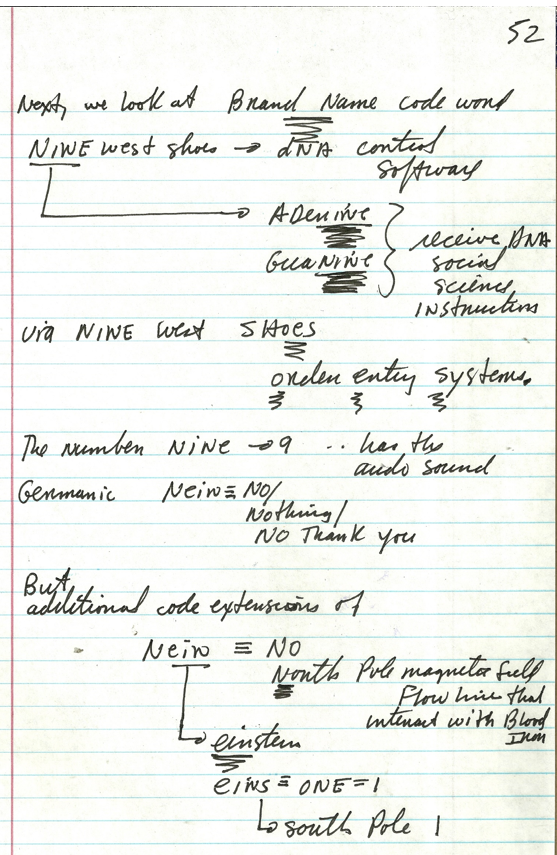 52
Next, we look at Brand Name code word
NINE west shoes → dNA control
software
ADenine
GuaNiNe
receive DNA
social
science
INstructions
via NINE west SHoes
order entry systems.
The Number NiNe → 9 .. has the
audo sound
Germanic Nein ≡ NO/
Nothing/
NO Thank you
But
additional code extensions of
Nein ≡ NO
North Pole magnetic field
Flow line that
interact with Blood
Iron
einstein
eins ≡ ONE = 1
south Pole 1